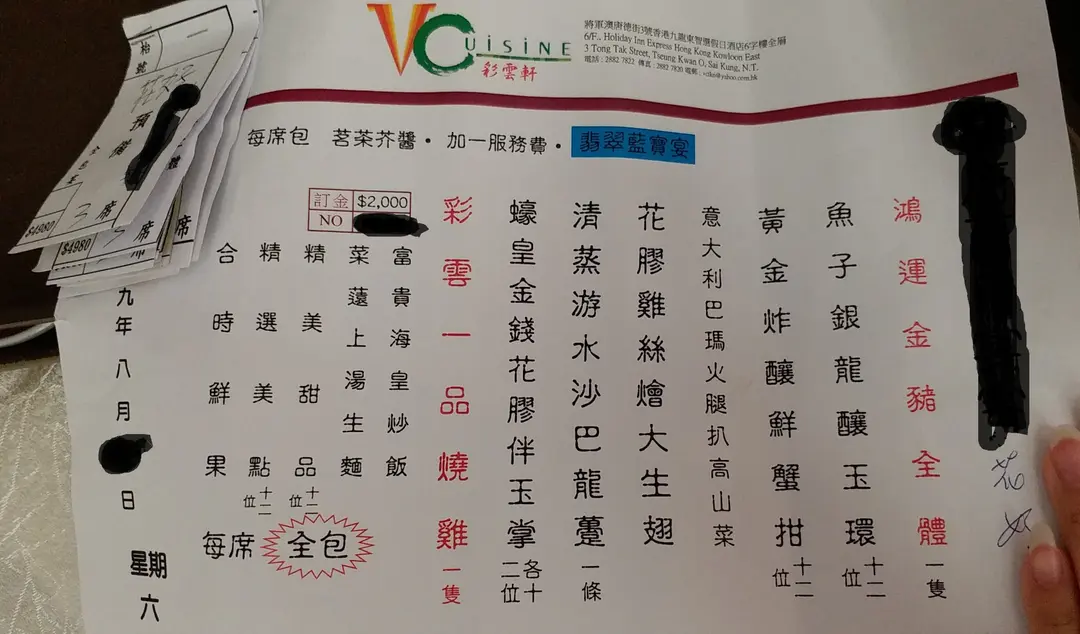 VCUiSiNE
彩雲軒
將軍澳唐德街3號香港九龍東智選假日酒店6字樓全層
6/F., Holiday Inn Express Hong Kong Kowloon East
3 Tong Tak Street, Tseung Kwan O, Sai Kung, N.T.
電話 : 2882 7822 傳真 : 2882 7820
每席包 茗茶芥醬・ 加一服務費・ 翡翠藍寶宴
鴻運金豬全體 一隻
魚子銀龍釀玉環 十二位
黃金炸釀鮮蟹拑 十二位
意大利巴瑪火腿扒高山菜
花膠雞絲燴大生翅
清蒸游水沙巴龍躉 一條
蠔皇金錢花膠伴玉掌 各十二位
彩雲一品燒雞 一隻
訂金 $2,000
NO
富貴海皇炒飯
菜薳上湯生麵
精美甜品 十二位
精選美點 十二位
合時鮮果
每席 全包
九年八月
日
星期六
枱號
預備
席
$4980
$4980
席
席